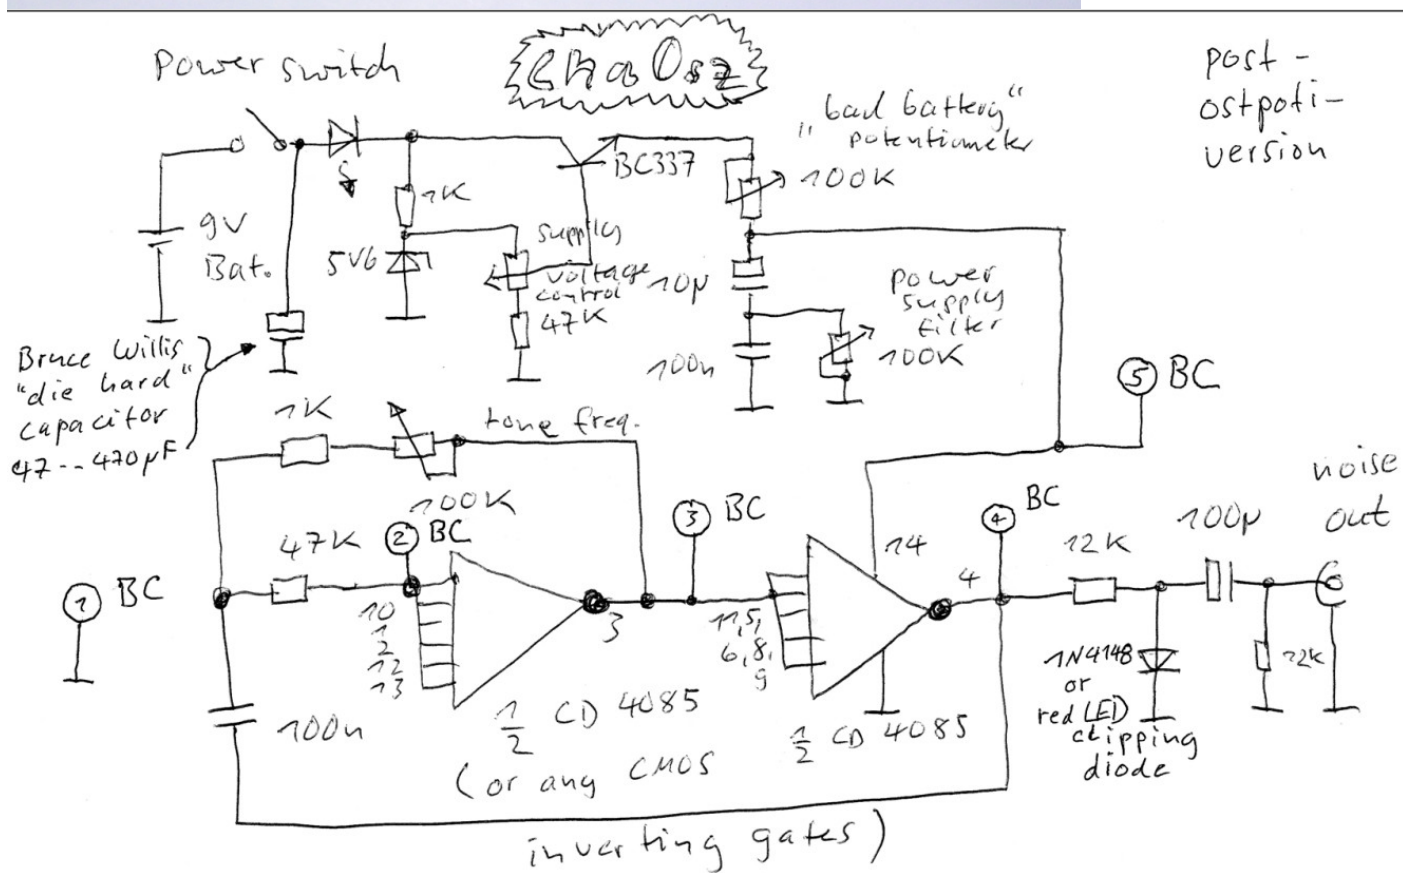 Power switch
ChaOsz
post -
ostpoti -
version
„bad battery“
potentiometer
BC337
100K
1K
9V
Bat.
5V6
supply
voltage
control
47K
10µ
power
supply
filter
100K
100n
Bruce Willis
"die hard"
capacitor
47--470µF
1K
tone freq.
100K
5 BC
noise
out
47K
2 BC
3 BC
4 BC
100µ
12K
14
4
1 BC
10
1
2
12
13
3
11,5,
6,8,
9
1N4148
or
red LED
clipping
diode
22K
100n
1/2 CD 4085
1/2 CD 4085
(or any CMOS
inverting gates)